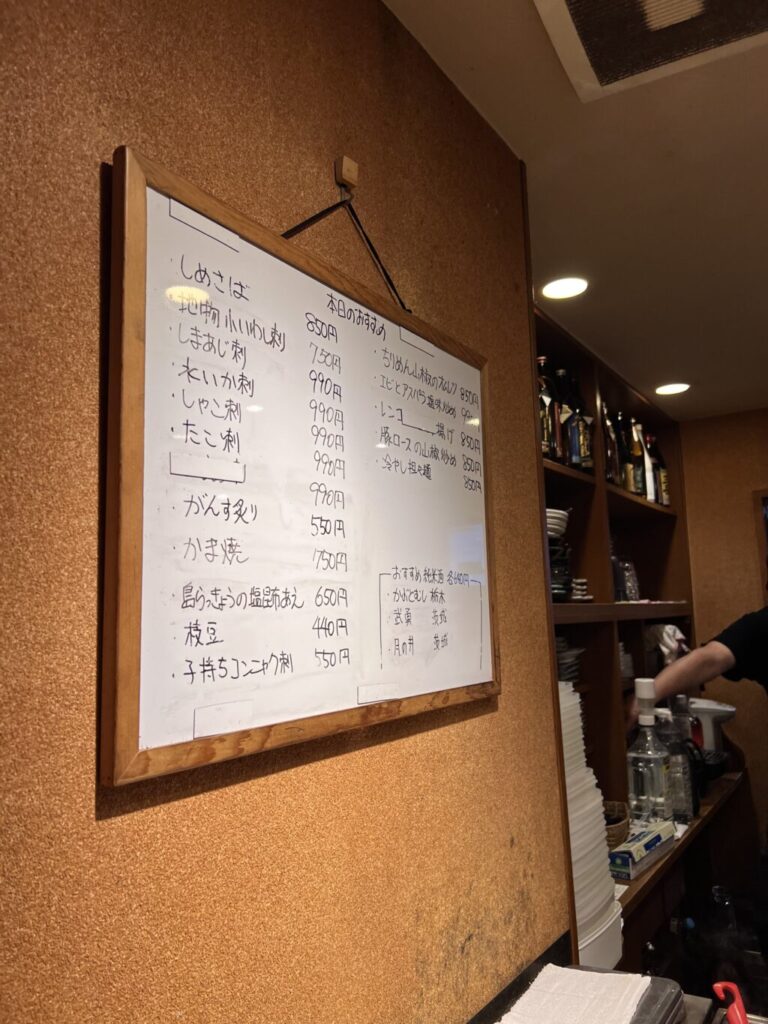 本日のおすすめ
・しめさば 850円
・地物小いわし刺 750円
・しまあじ刺 990円
・水いか刺 990円
・しゃこ刺 990円
・たこ刺 990円
990円
・がんす炙り 550円
・かま焼 750円
・島らっきょうの塩昆布あえ 650円
・枝豆 440円
・子持ちコンニャク刺 550円
・ちりめん山椒のオムレツ 850円
・エビとアスパラ塩味炒め 990円
・レンコ 揚げ 850円
・豚ロースの山椒炒め 850円
・冷やし担々麺 850円
おすすめ純米酒
・かぶとむし 栃木
・武勇 茨城
・月の井 茨城